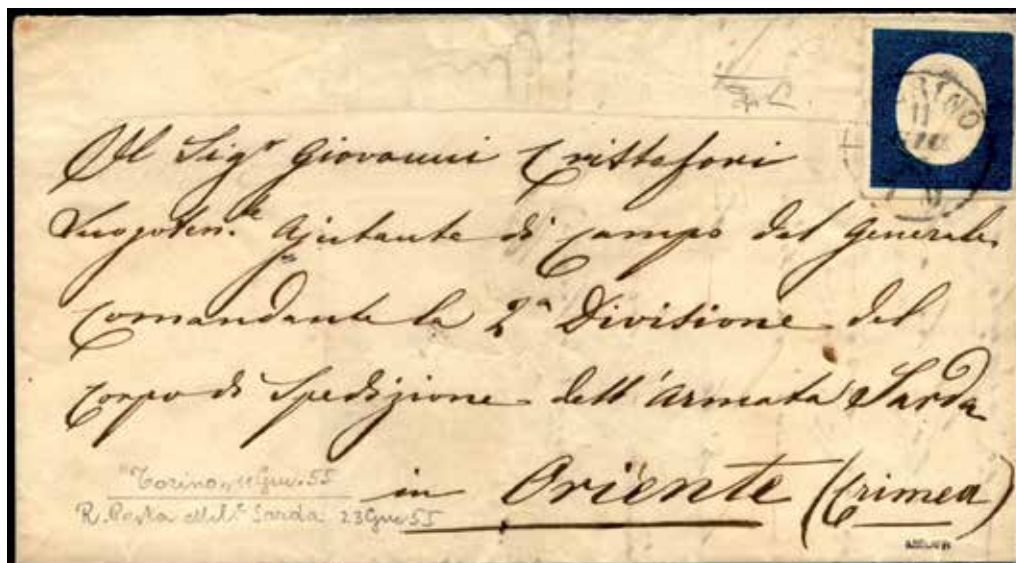 RINO
11
Al Sigr Giovanni Crittafori
Luogoten.te Ajutante di Campo del Generale
Comandante la 2a Divisione del
Corpo di Spedizione dell'Armata Sarda
in Oriente (Crimea)
"Torino,, 11 Giu. 55
R. Posta Milit. Sarda 23 Giu 55